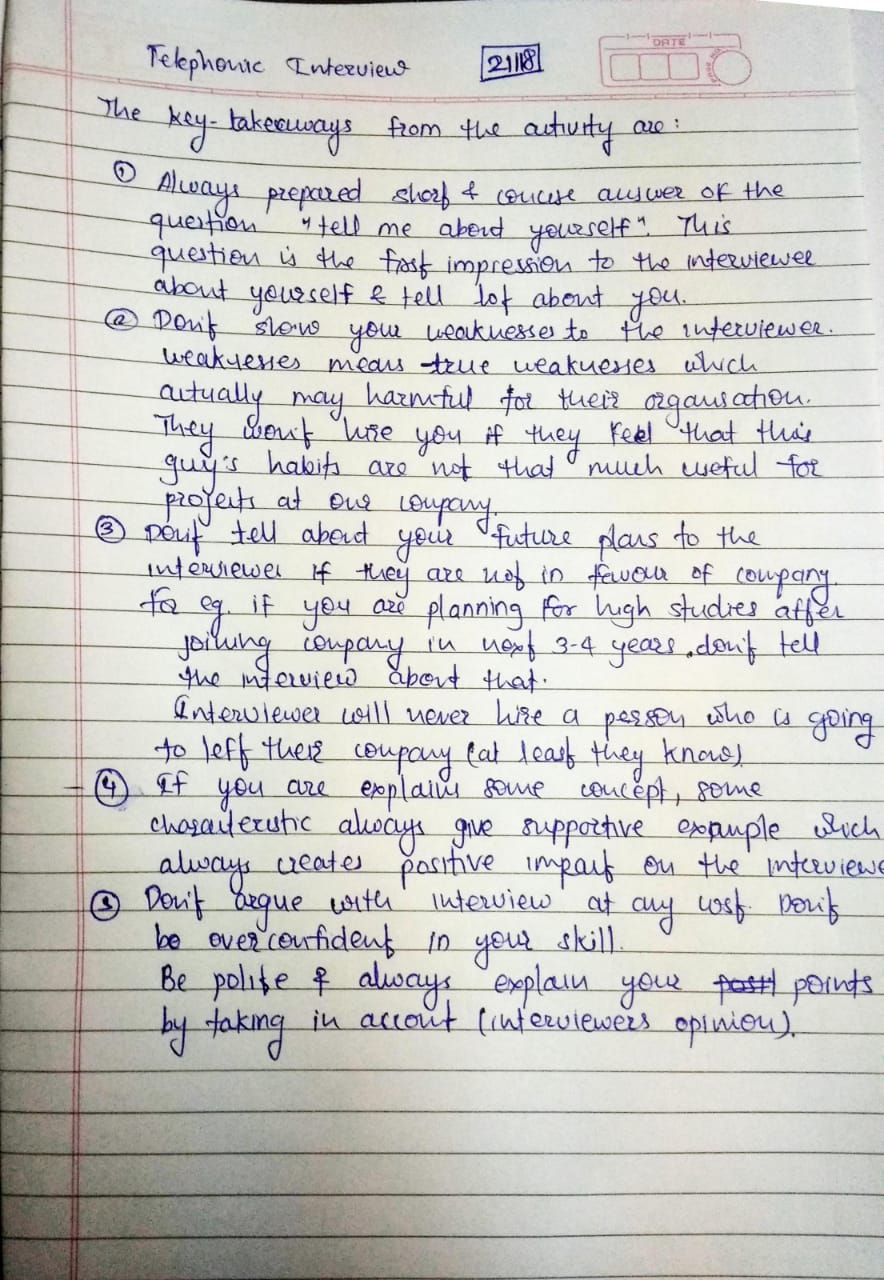 Telephonic Interview 21118
DATE
PAGE NO.
The key-takeaways from the activity are:
① Always prepared short & concise answer of the
question "tell me about yourself". This
question is the first impression to the interviewee
about yourself & tell lot about you.
② Don't show your weaknesses to the interviewer.
weaknesses means true weaknesses which
actually may harmful for their organisation.
They won't hire you if they feel that this
guy's habits are not that much useful for
projects at our company.
③ Don't tell about your future plans to the
interviewer if they are not in favour of company.
for eg. if you are planning for high studies after
joining company in next 3-4 years, don't tell
the interview about that.
Interviewer will never hire a person who is going
to left their company (at least they know)
④ If you are explains some concept, some
characteristic always give supportive example which
always creates positive impact on the interviewe
⑤ Don't argue with interview at any cost. Don't
be overconfident in your skill.
Be polite & always explain your points
by taking in account (interviewers opinion).